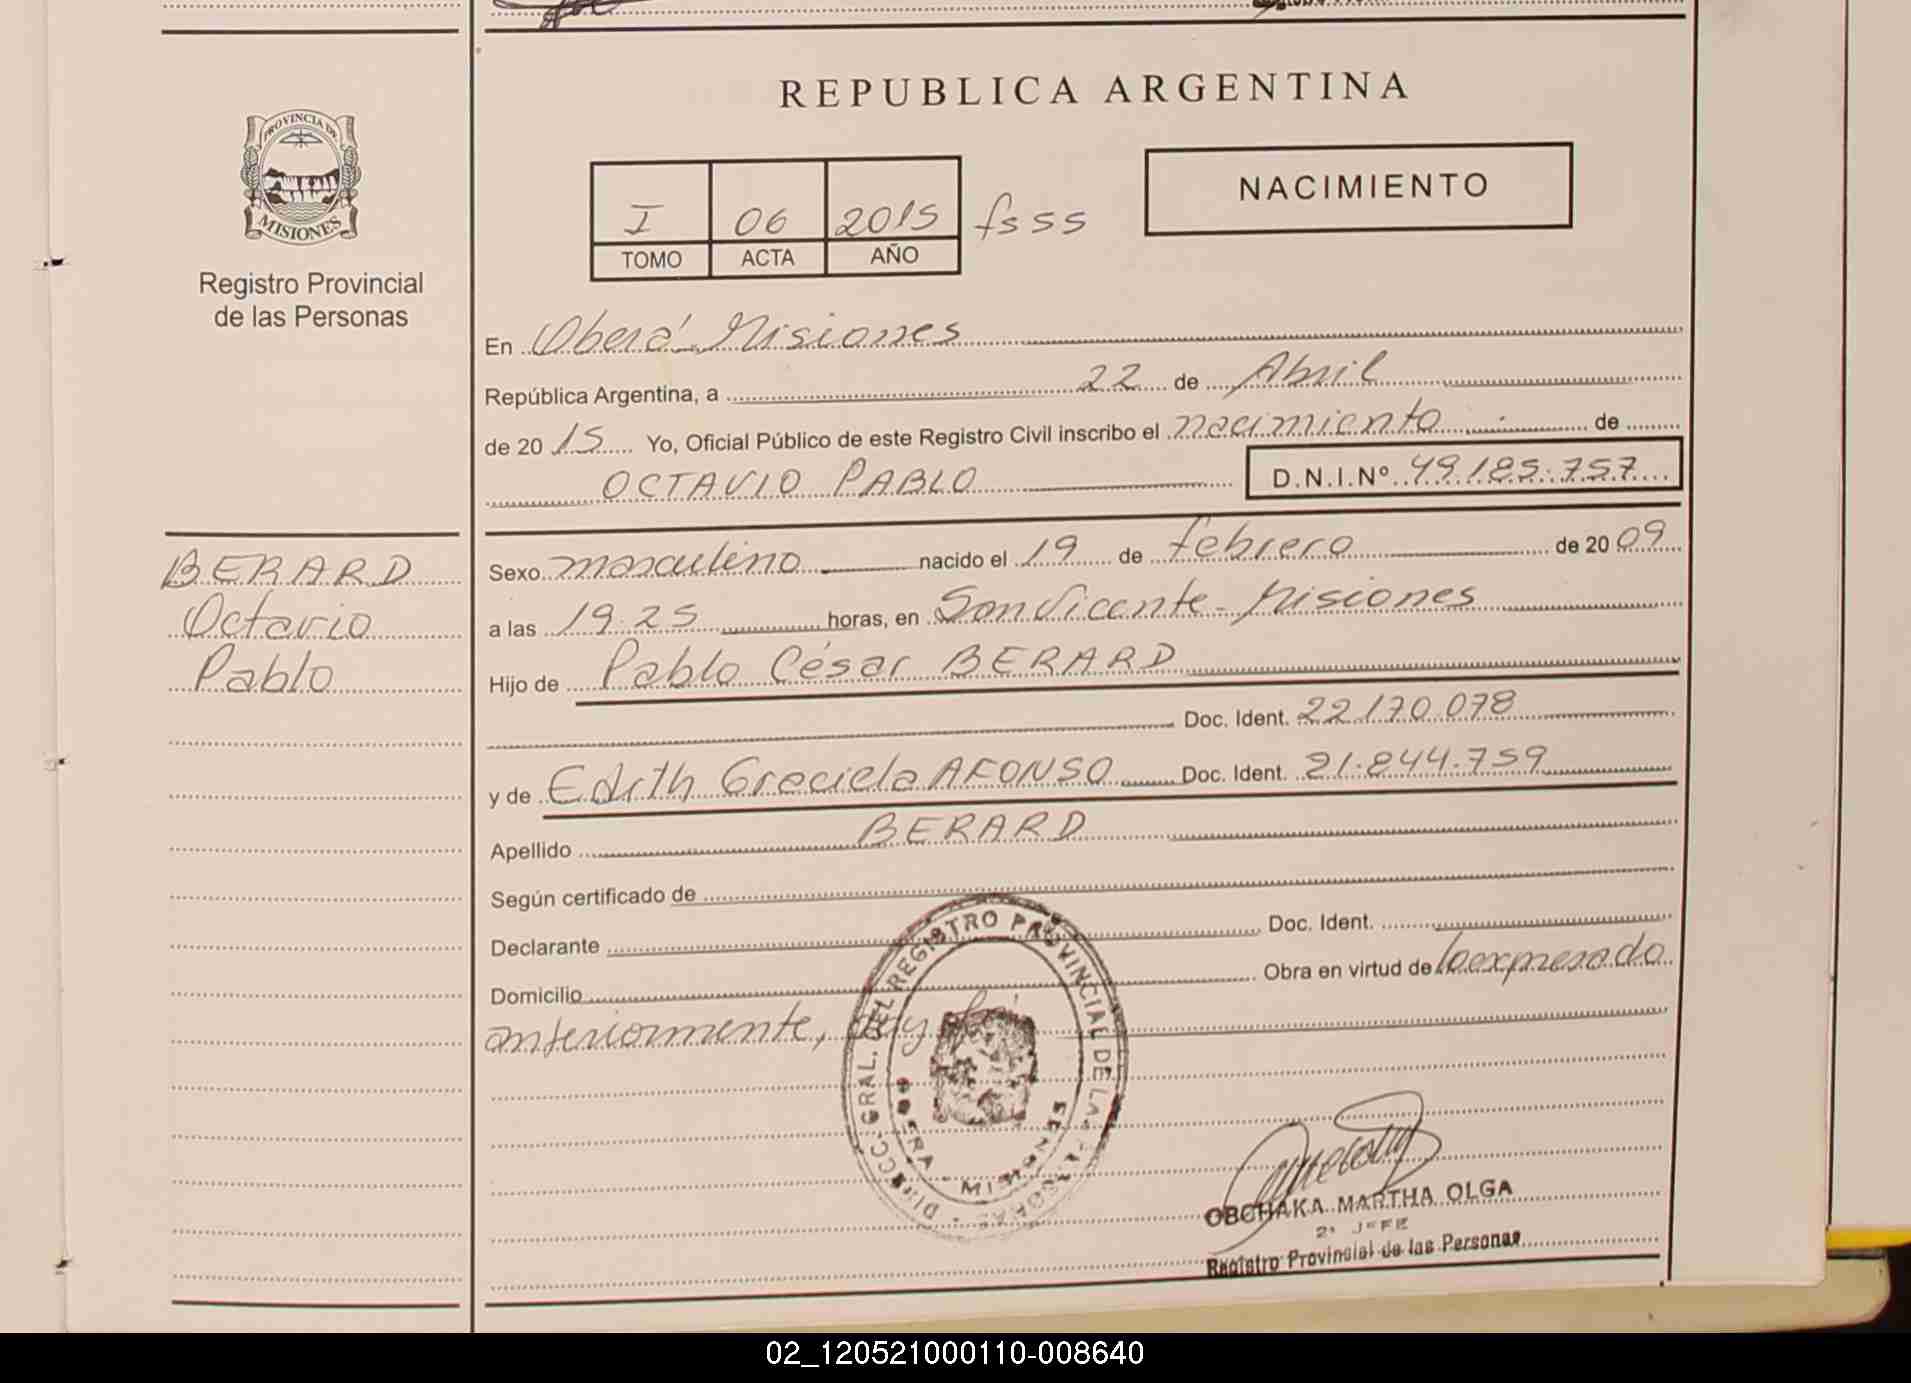 REPUBLICA ARGENTINA
PROVINCIA DE
MISIONES
Registro Provincial
de las Personas
NACIMIENTO
I 06 2015 fs 55
TOMO ACTA AÑO
En Oberá Misiones
República Argentina, a 22 de Abril
de 2015 Yo, Oficial Público de este Registro Civil inscribo el nacimiento de
OCTAVIO PABLO D.N.I.Nº 49.185.757
BERARD
Octavio
Pablo
Sexo masculino nacido el 19 de febrero de 2009
a las 19.25 horas, en San Vicente - Misiones
Hijo de Pablo César BERARD
Doc. Ident. 22.170.078
y de Edith Graciela AFONSO Doc. Ident. 21.844.759
Apellido BERARD
Según certificado de
Declarante Doc. Ident.
Domicilio Obra en virtud de lo expresado
anteriormente, doy fé
DIRECC. GRAL. DEL REGISTRO PROVINCIAL DE LAS PERSONAS
OBERA MISIONES
OBCHAKA MARTHA OLGA
2º JEFE
Registro Provincial de las Personas
02_120521000110-008640